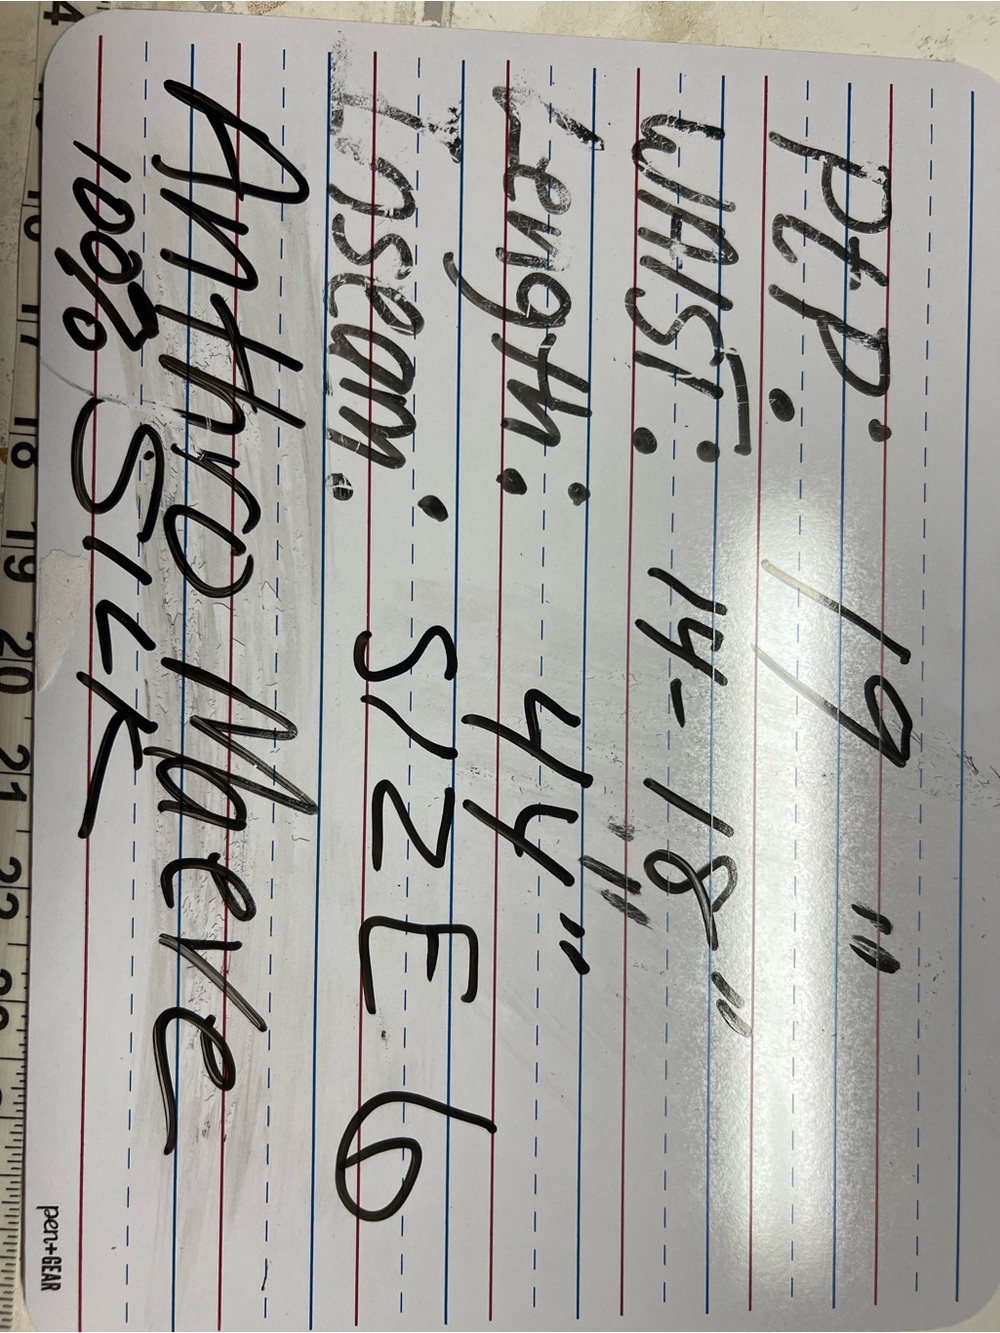 PtP: 19"
WAIST: 14-18"
Length: 44"
Inseam: SIZE 6
Anthro Maeve
100% SILK
pen+GEAR
16 17 18 19 20 21 22